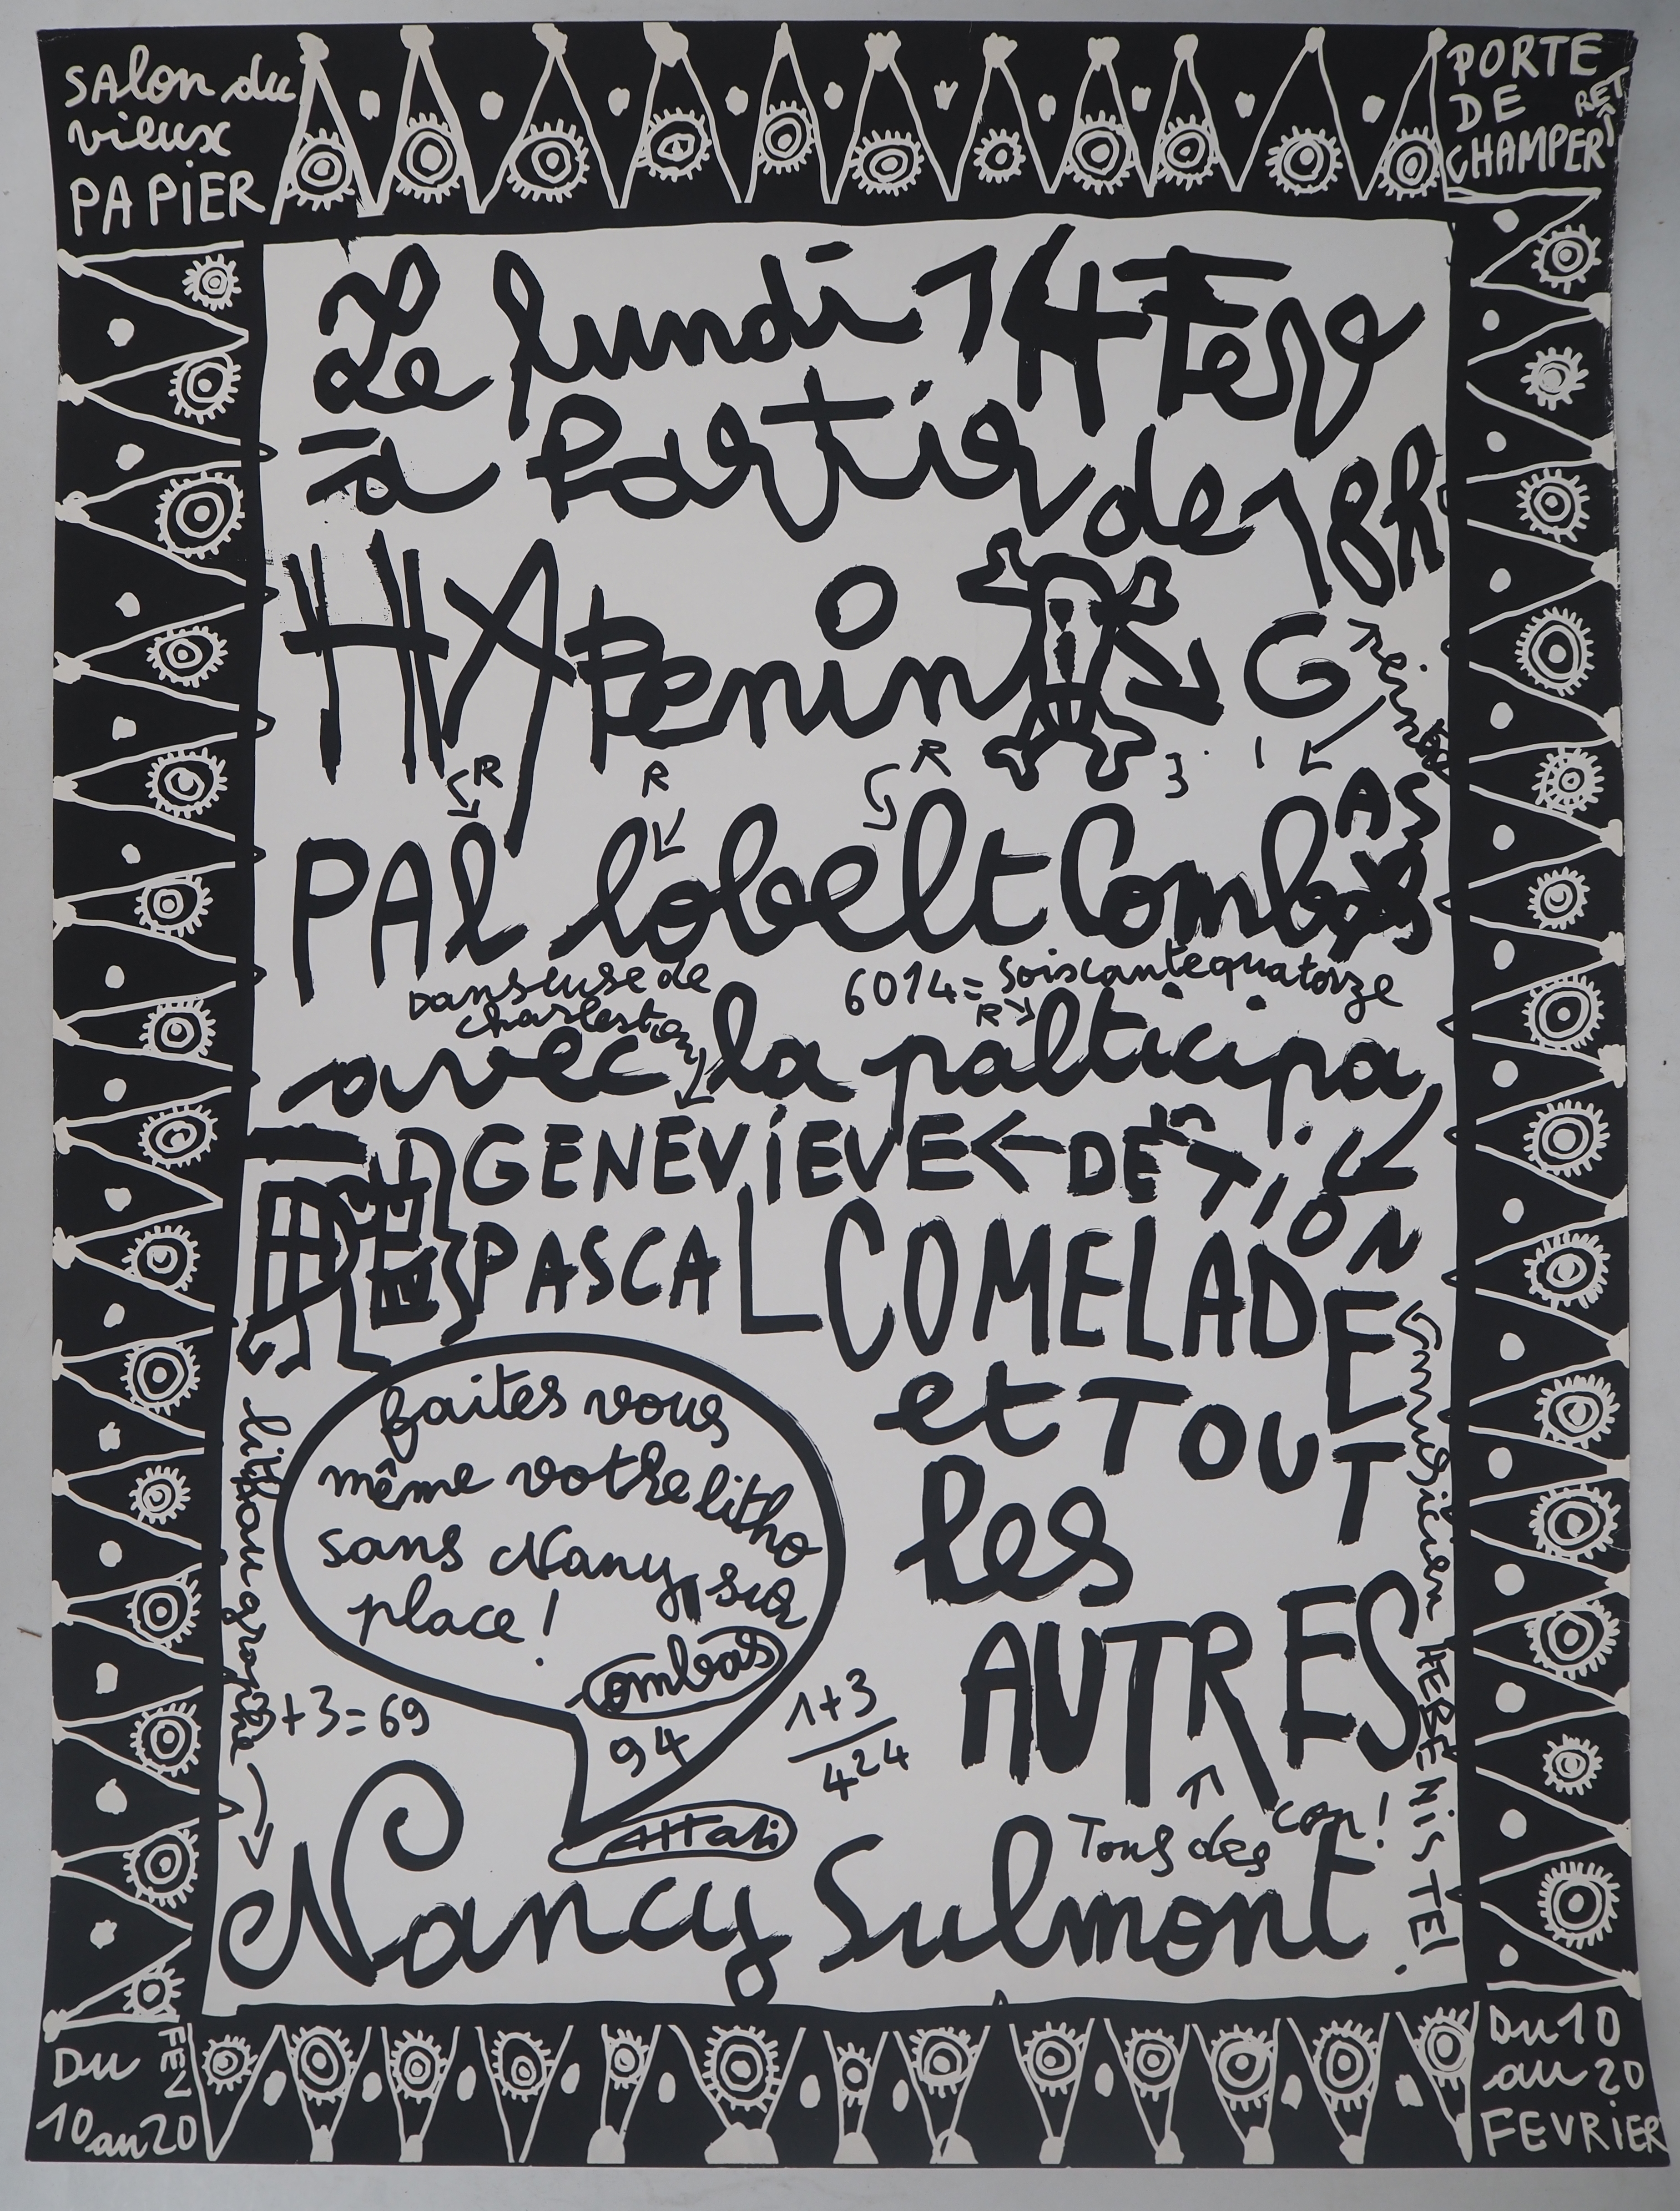 SALon du
vieux
PAPiER
PORTE
DE
CHAMPER
RET
Le lundi 14 Fevr
à Partir de 18h
HAPenin G
R
R
R
3 1
PAl lobelt Combas
AS
danseuse de
charleston
6014 = soiscantequatorze
R
avec la palticipa
TION
DE
GENEViEVE
PASCAL COMELADE
ET
et TOUT
les
AUTRES
faites vous
même votre litho
sans Nany, sur
place !
Combas
94
Attali
+3=69
1+3
424
Tous des con !
lithaugraphie
musicien HEBENiSTE!
Nancy Sulmont.
Du
10 au 20
FEV
Du 10
au 20
FEVRiER